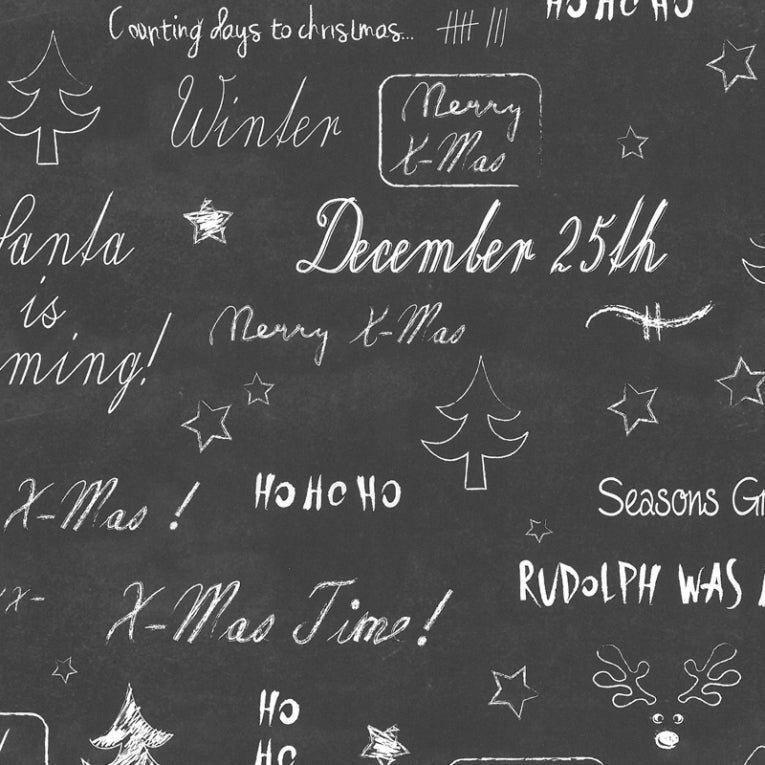 HO HO HO
Counting days to christmas...
Winter
Merry
X-Mas
Santa
is
ming!
December 25th
Merry X-Mas
X-Mas !
HO HO HO
Seasons Gr
RUDOLPH WAS
X-
X-Mas Time!
HO
HO